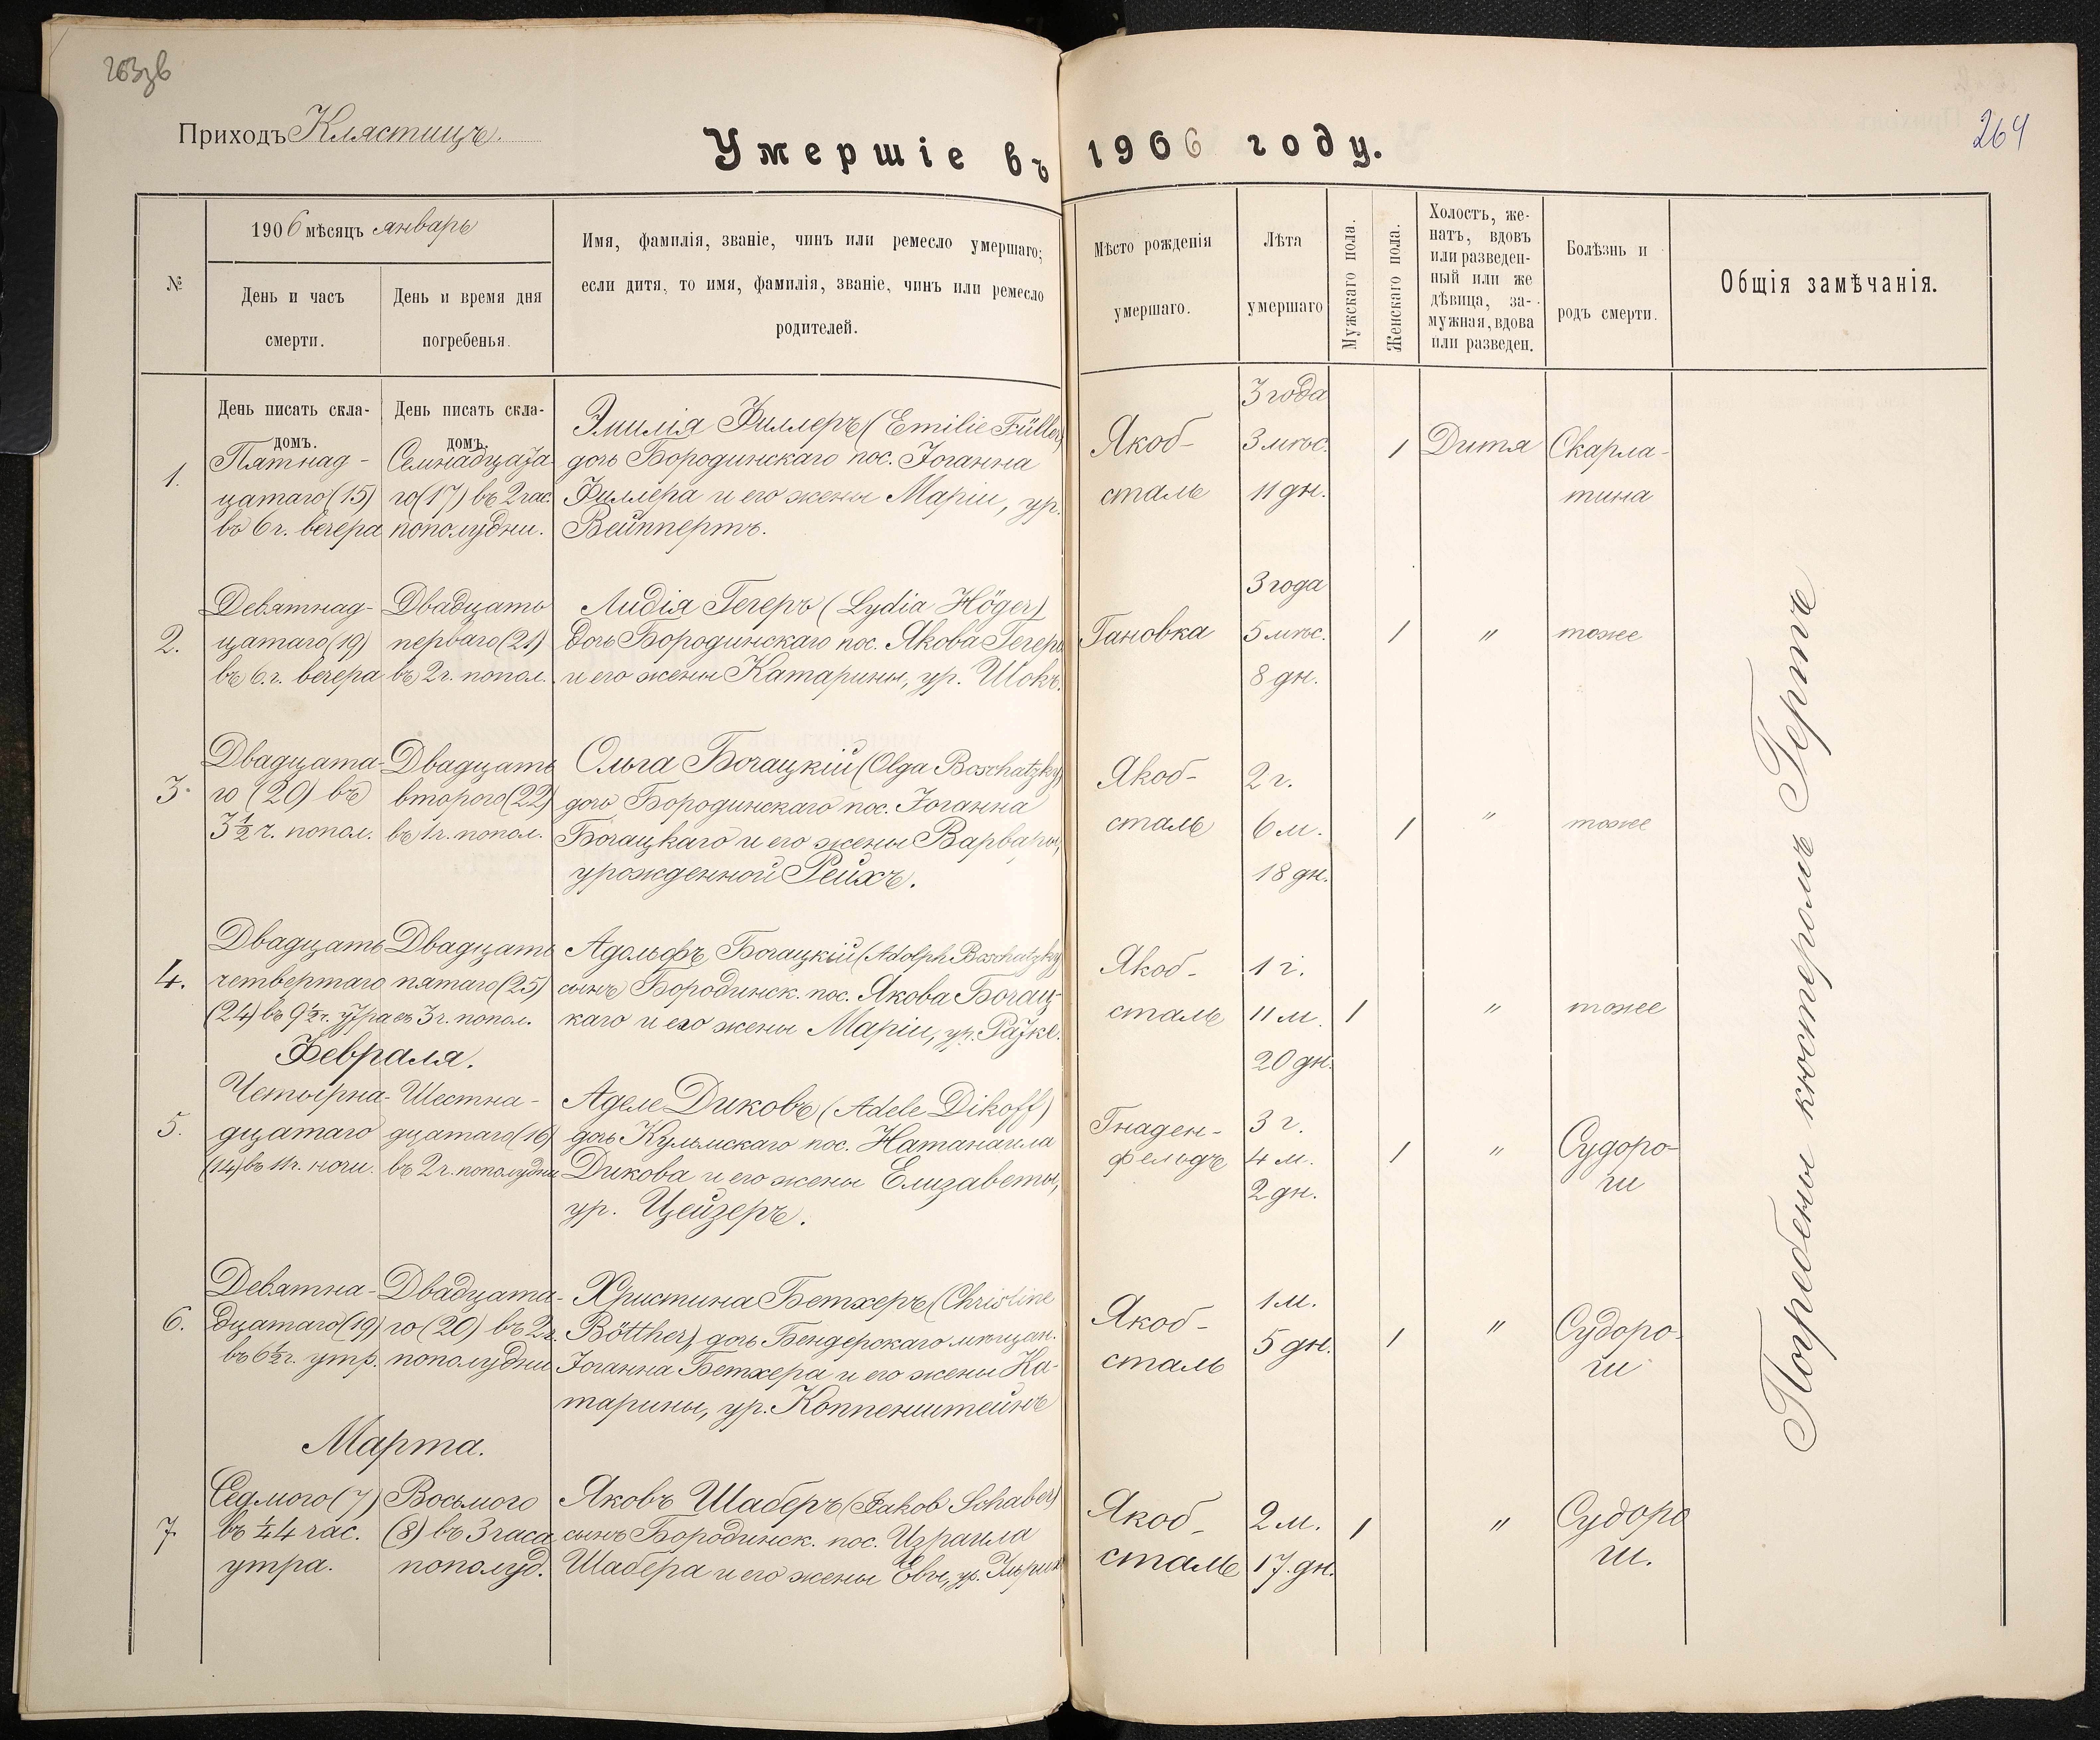 263зв
264
Приходъ Клястицъ.
Умершіе въ 1906 году.
№
1906 мѣсяцъ январь
День и часъ
смерти.
День и время дня
погребенья.
Имя, фамилія, званіе, чинъ или ремесло умершаго;
если дитя, то имя, фамилія, званіе, чинъ или ремесло
родителей.
Мѣсто рожденія
умершаго.
Лѣта
умершаго
Мужскаго пола.
Женскаго пола.
Холостъ, же-
натъ, вдовъ
или разведен-
ный или же
дѣвица, за-
мужная, вдова
или разведен.
Болѣзнь и
родъ смерти.
Общія замѣчанія.
День писать скла-
домъ.
День писать скла-
домъ.
1.
Пятнад-
цатаго (15)
въ 6 ч. вечера
Семнадцата
го (17) въ 2 час.
пополудни.
Эмилія Филлеръ (Emilie Füller)
дочь Бородинскаго пос. Іоганна
Филлера и его жены Маріи, ур.
Вейппертъ.
Якоб-
сталь
3 года
3 мѣс.
11 дн.
1
Дитя
Скарла-
тина
2.
Девятнад-
цатаго (19)
въ 6 ч. вечера
Двадцать
перваго (21)
въ 2 ч. попол.
Лидія Гегеръ (Lydia Höger)
дочь Бородинскаго пос. Якова Гегеръ
и его жены Катарины, ур. Шокъ.
Гановка
3 года
5 мѣс.
8 дн.
1
"
тоже
3.
Двадцата-
го (20) въ
3 1/2 ч. попол.
Двадцать
второго (22)
въ 1 ч. попол.
Ольга Богацкій (Olga Boschatzky)
дочь Бородинскаго пос. Іоганна
Богацкаго и его жены Варвары,
урожденной Рейхъ.
Якоб-
сталь
2 г.
6 м.
18 дн.
1
"
тоже
4.
Двадцать
четвертаго
(24) въ 9 1/2 ч. утра
Двадцать
пятаго (25)
въ 3 ч. попол.
Адольфъ Богацкій (Adolph Boschatzky)
сынъ Бородинск. пос. Якова Богац-
каго и его жены Маріи, ур. Ратке.
Якоб-
сталь
1 г.
11 м.
20 дн.
1
"
тоже
Февраля.
5.
Четырна-
дцатаго
(14) въ 11 ч. ночи.
Шестна-
дцатаго (16)
въ 2 ч. пополудни
Аделе Диковъ (Adele Dikoff)
дочь Кульмскаго пос. Натанаила
Дикова и его жены Елизаветы,
ур. Цейзеръ.
Гнаден-
фельдъ
3 г.
4 м.
2 дн.
1
"
Судоро-
ги
6.
Девятна-
дцатаго (19)
въ 6 1/2 ч. утр.
Двадцата-
го (20) въ 2 ч.
пополудни
Христина Бетхеръ (Christine
Bötther), дочь Бендерскаго мѣщан.
Іоганна Бетхера и его жены Ка-
тарины, ур. Коппенштейнъ
Якоб-
сталь
1 м.
5 дн.
1
"
Судоро-
ги
Марта.
7.
Седмого (7)
въ 1/4 4 час.
утра.
Восьмого
(8) въ 3 часа
пополуд.
Яковъ Шаберъ (Jakob Schaber)
сынъ Бородинск. пос. Израила
Шабера и его жены Евы, ур.
Якоб-
сталь
2 м.
17 дн.
1
"
Судоро
ги.
Погребены кюстеромъ Герте